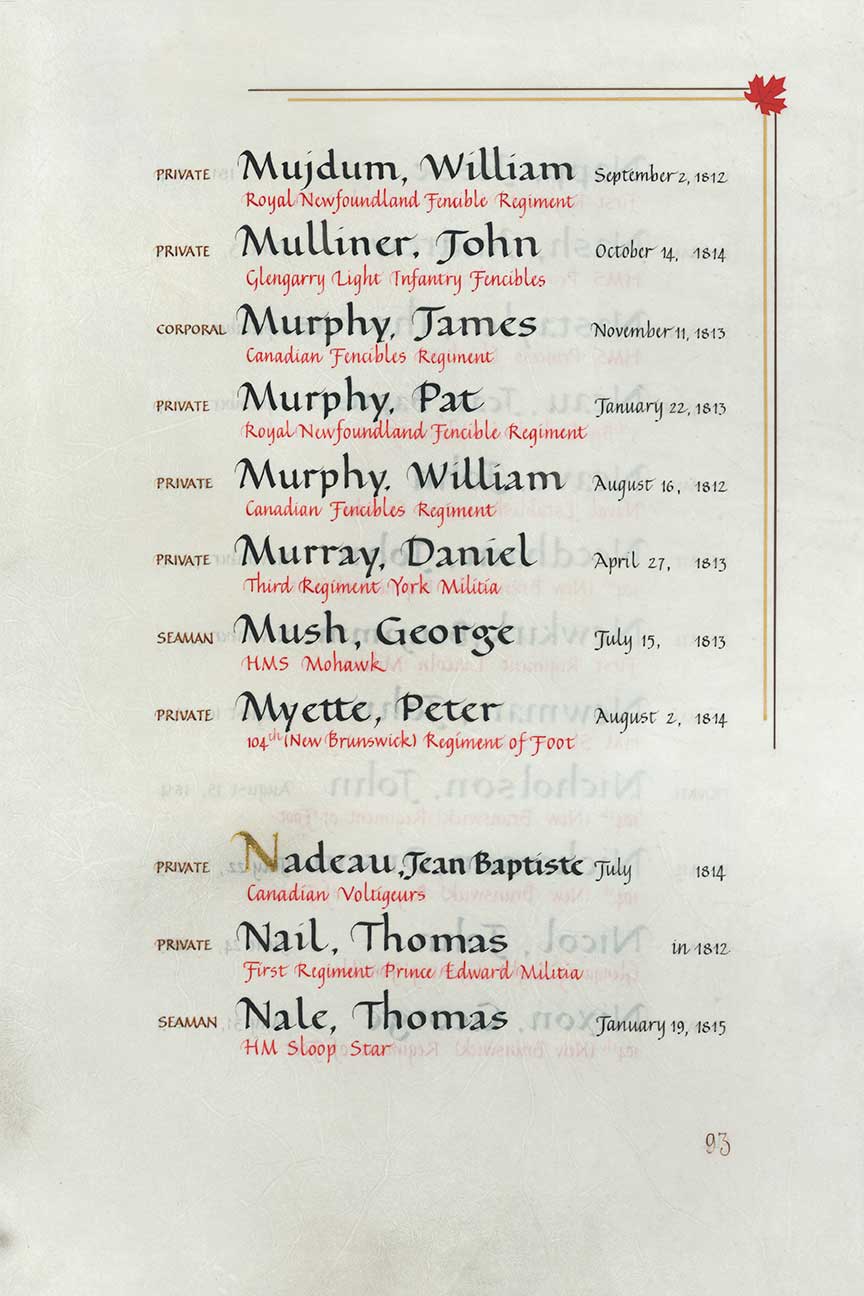 PRIVATE Mujdum, William September 2, 1812
Royal Newfoundland Fencible Regiment
PRIVATE Mulliner, John October 14, 1814
Glengarry Light Infantry Fencibles
CORPORAL Murphy, James November 11, 1813
Canadian Fencibles Regiment
PRIVATE Murphy, Pat January 22, 1813
Royal Newfoundland Fencible Regiment
PRIVATE Murphy, William August 16, 1812
Canadian Fencibles Regiment
PRIVATE Murray, Daniel April 27, 1813
Third Regiment York Militia
SEAMAN Mush, George July 15, 1813
HMS Mohawk
PRIVATE Myette, Peter August 2, 1814
104th (New Brunswick) Regiment of Foot
PRIVATE Nadeau, Jean Baptiste July 1814
Canadian Voltigeurs
PRIVATE Nail, Thomas in 1812
First Regiment Prince Edward Militia
SEAMAN Nale, Thomas January 19, 1815
HM Sloop Star
93